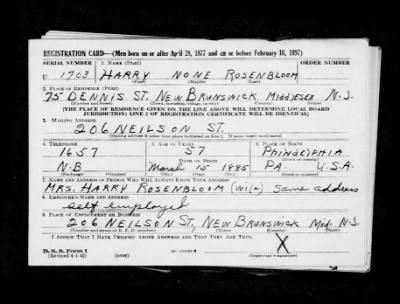 REGISTRATION CARD—(Men born on or after April 28, 1877 and on or before February 16, 1897)
SERIAL NUMBER 1. NAME (Print) ORDER NUMBER
U 1703 HARRY NONE ROSENBLOOM
(First) (Middle) (Last)
2. PLACE OF RESIDENCE (Print)
75 DENNIS ST. NEW BRUNSWICK MIDDLESEX N.J.
(Number and street) (Town, township, village, or city) (County) (State)
[THE PLACE OF RESIDENCE GIVEN ON THE LINE ABOVE WILL DETERMINE LOCAL BOARD
JURISDICTION; LINE 2 OF REGISTRATION CERTIFICATE WILL BE IDENTICAL]
3. MAILING ADDRESS
206 NEILSON ST.
[Mailing address if other than place indicated on line 2. If same insert word same]
4. TELEPHONE 5. AGE IN YEARS 6. PLACE OF BIRTH
1657 57 PHILADELPHIA
DATE OF BIRTH (Town or county)
N.B. March 15 1885 PA. U.S.A.
(Exchange) (Number) (Mo.) (Day) (Yr.) (State or country)
7. NAME AND ADDRESS OF PERSON WHO WILL ALWAYS KNOW YOUR ADDRESS
MRS. HARRY ROSENBLOOM (wife) Same address
8. EMPLOYER'S NAME AND ADDRESS
self employed
9. PLACE OF EMPLOYMENT OR BUSINESS
206 NEILSON ST, NEW BRUNSWICK Mid. N.J.
(Number and street or R. F. D. number) (Town) (County) (State)
I AFFIRM THAT I HAVE VERIFIED ABOVE ANSWERS AND THAT THEY ARE TRUE.
D. S. S. Form 1 X
(Revised 4-1-42) (Registrant's signature)